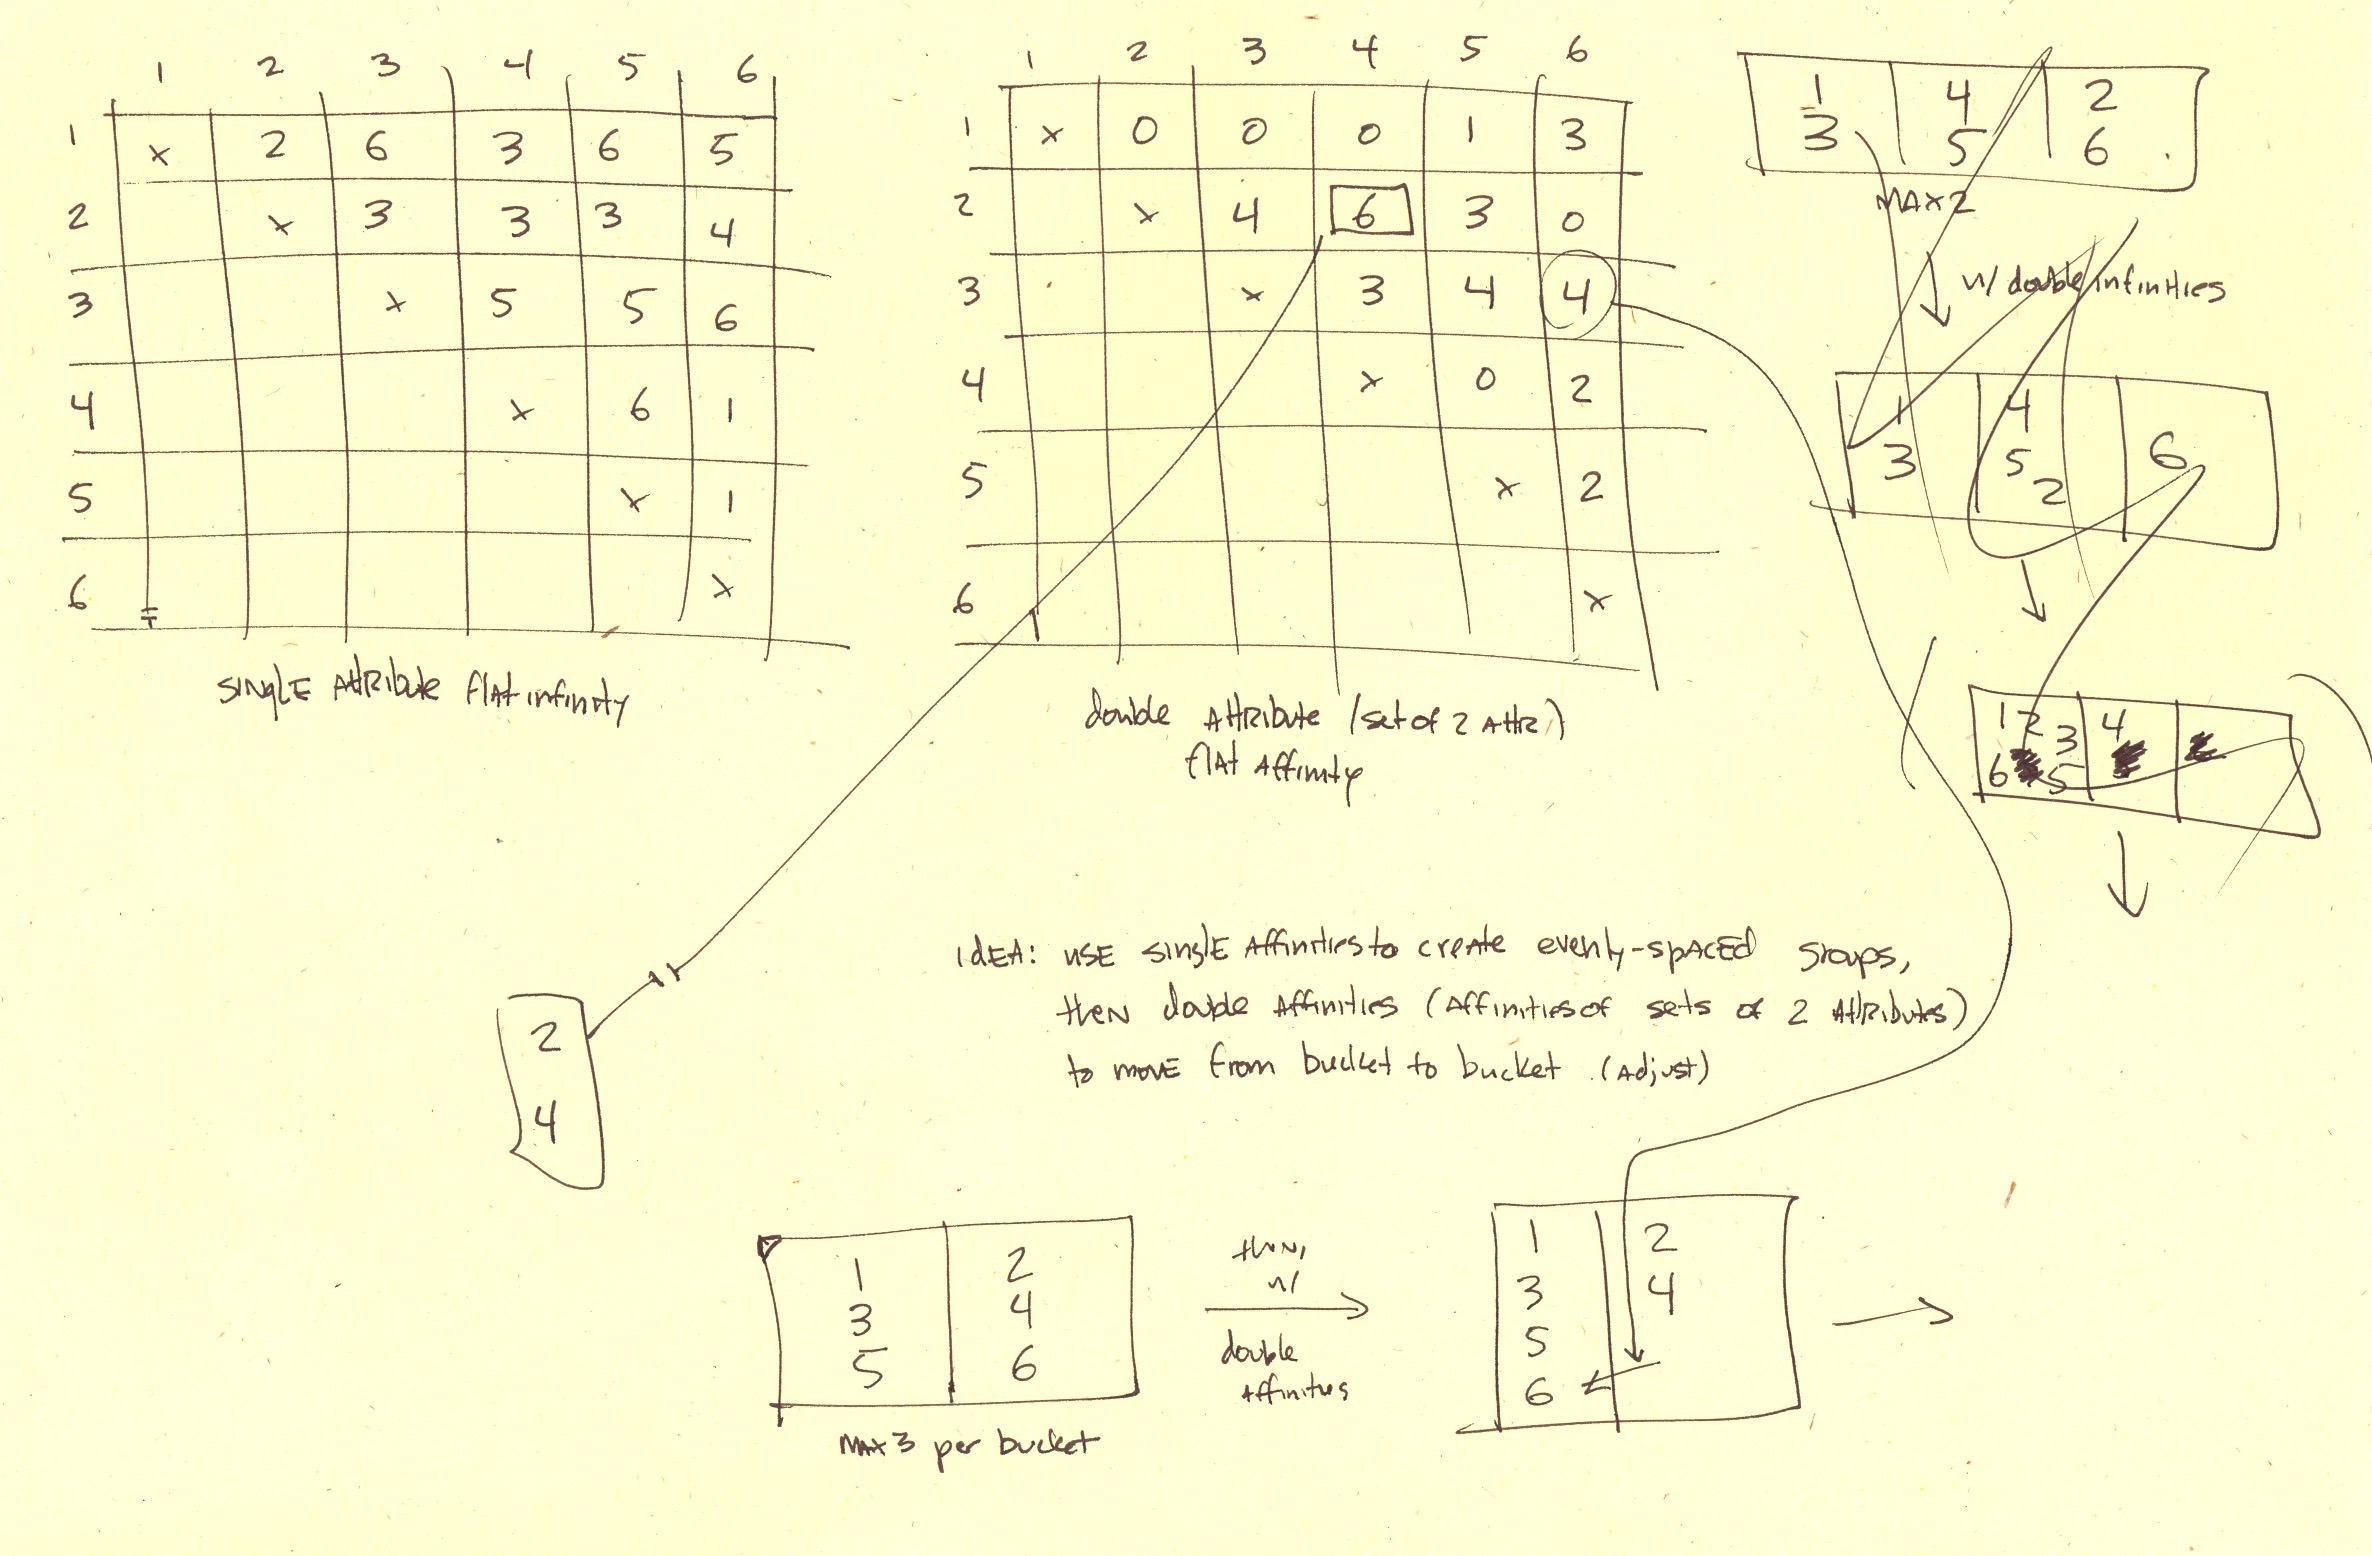 1 2 3 4 5 6
1 x 2 6 3 6 5
2 x 3 3 3 4
3 x 5 5 6
4 x 6 1
5 x 1
6 x
SINGLE Attribute flat infinity
1 2 3 4 5 6
1 x 0 0 0 1 3
2 x 4 6 3 0
3 x 3 4 4
4 x 0 2
5 x 2
6 x
double Attribute (set of 2 Attr)
flat Affinity
1 4 2
3 5 6
MAX 2
w/ double infinities
1 4
3 5 2 6
1 2 3 4
6 5
IdEA: USE SINGLE Affinities to create evenly-spaced groups,
then double Affinities (Affinities of sets of 2 Attributes)
to move from bucket to bucket. (Adjust)
2
4
1 2
3 4
5 6
MAX 3 per bucket
then,
w/
double
Affinities
1 2
3 4
5
6